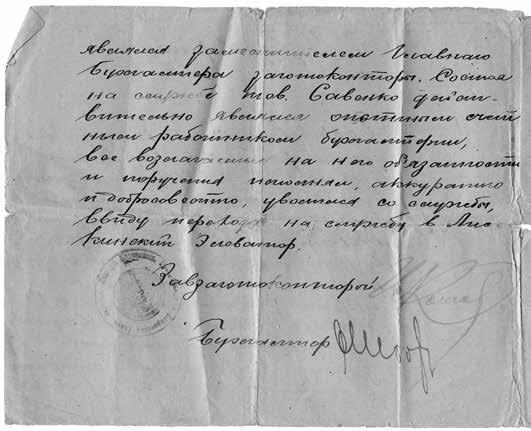 являлся заместителем Главного
Бухгалтера заготоконторы. Состоя
на службе тов. Савенко действ
вительно являлся опытным счет
ным работником бухгалтерии,
все возлагаемые на него обязанности
и поручения исполнял, аккуратно
и добросовестно, уволился со службы,
ввиду перехода на службу в Лис
кинский Элеватор.
Завзаготоконторой
Бухгалтер